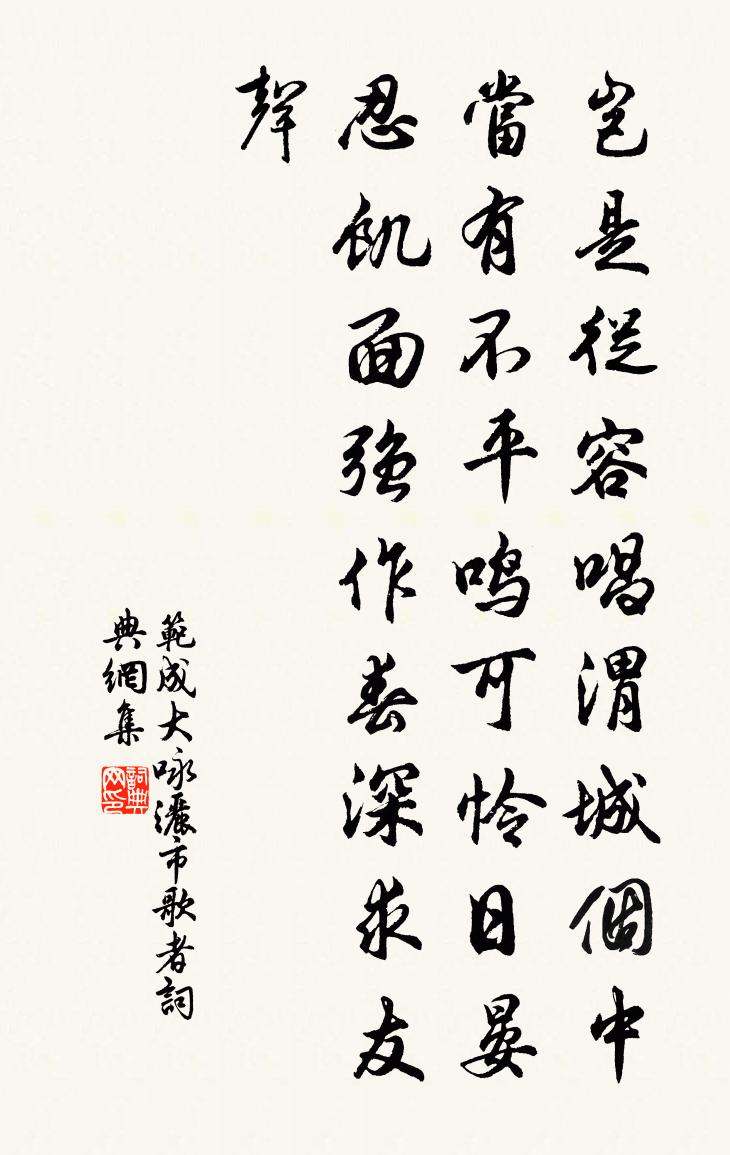 豈是從容唱渭城個中
當有不平鳴可憐日晏
忍飢面強作春深求友
聲
範成大咏灑市歌者詞
典網集
詞典
网印